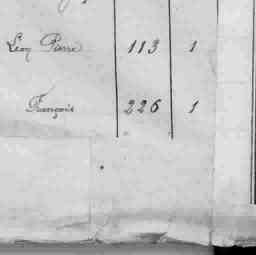 Léon Pierre 113 1
François 226 1